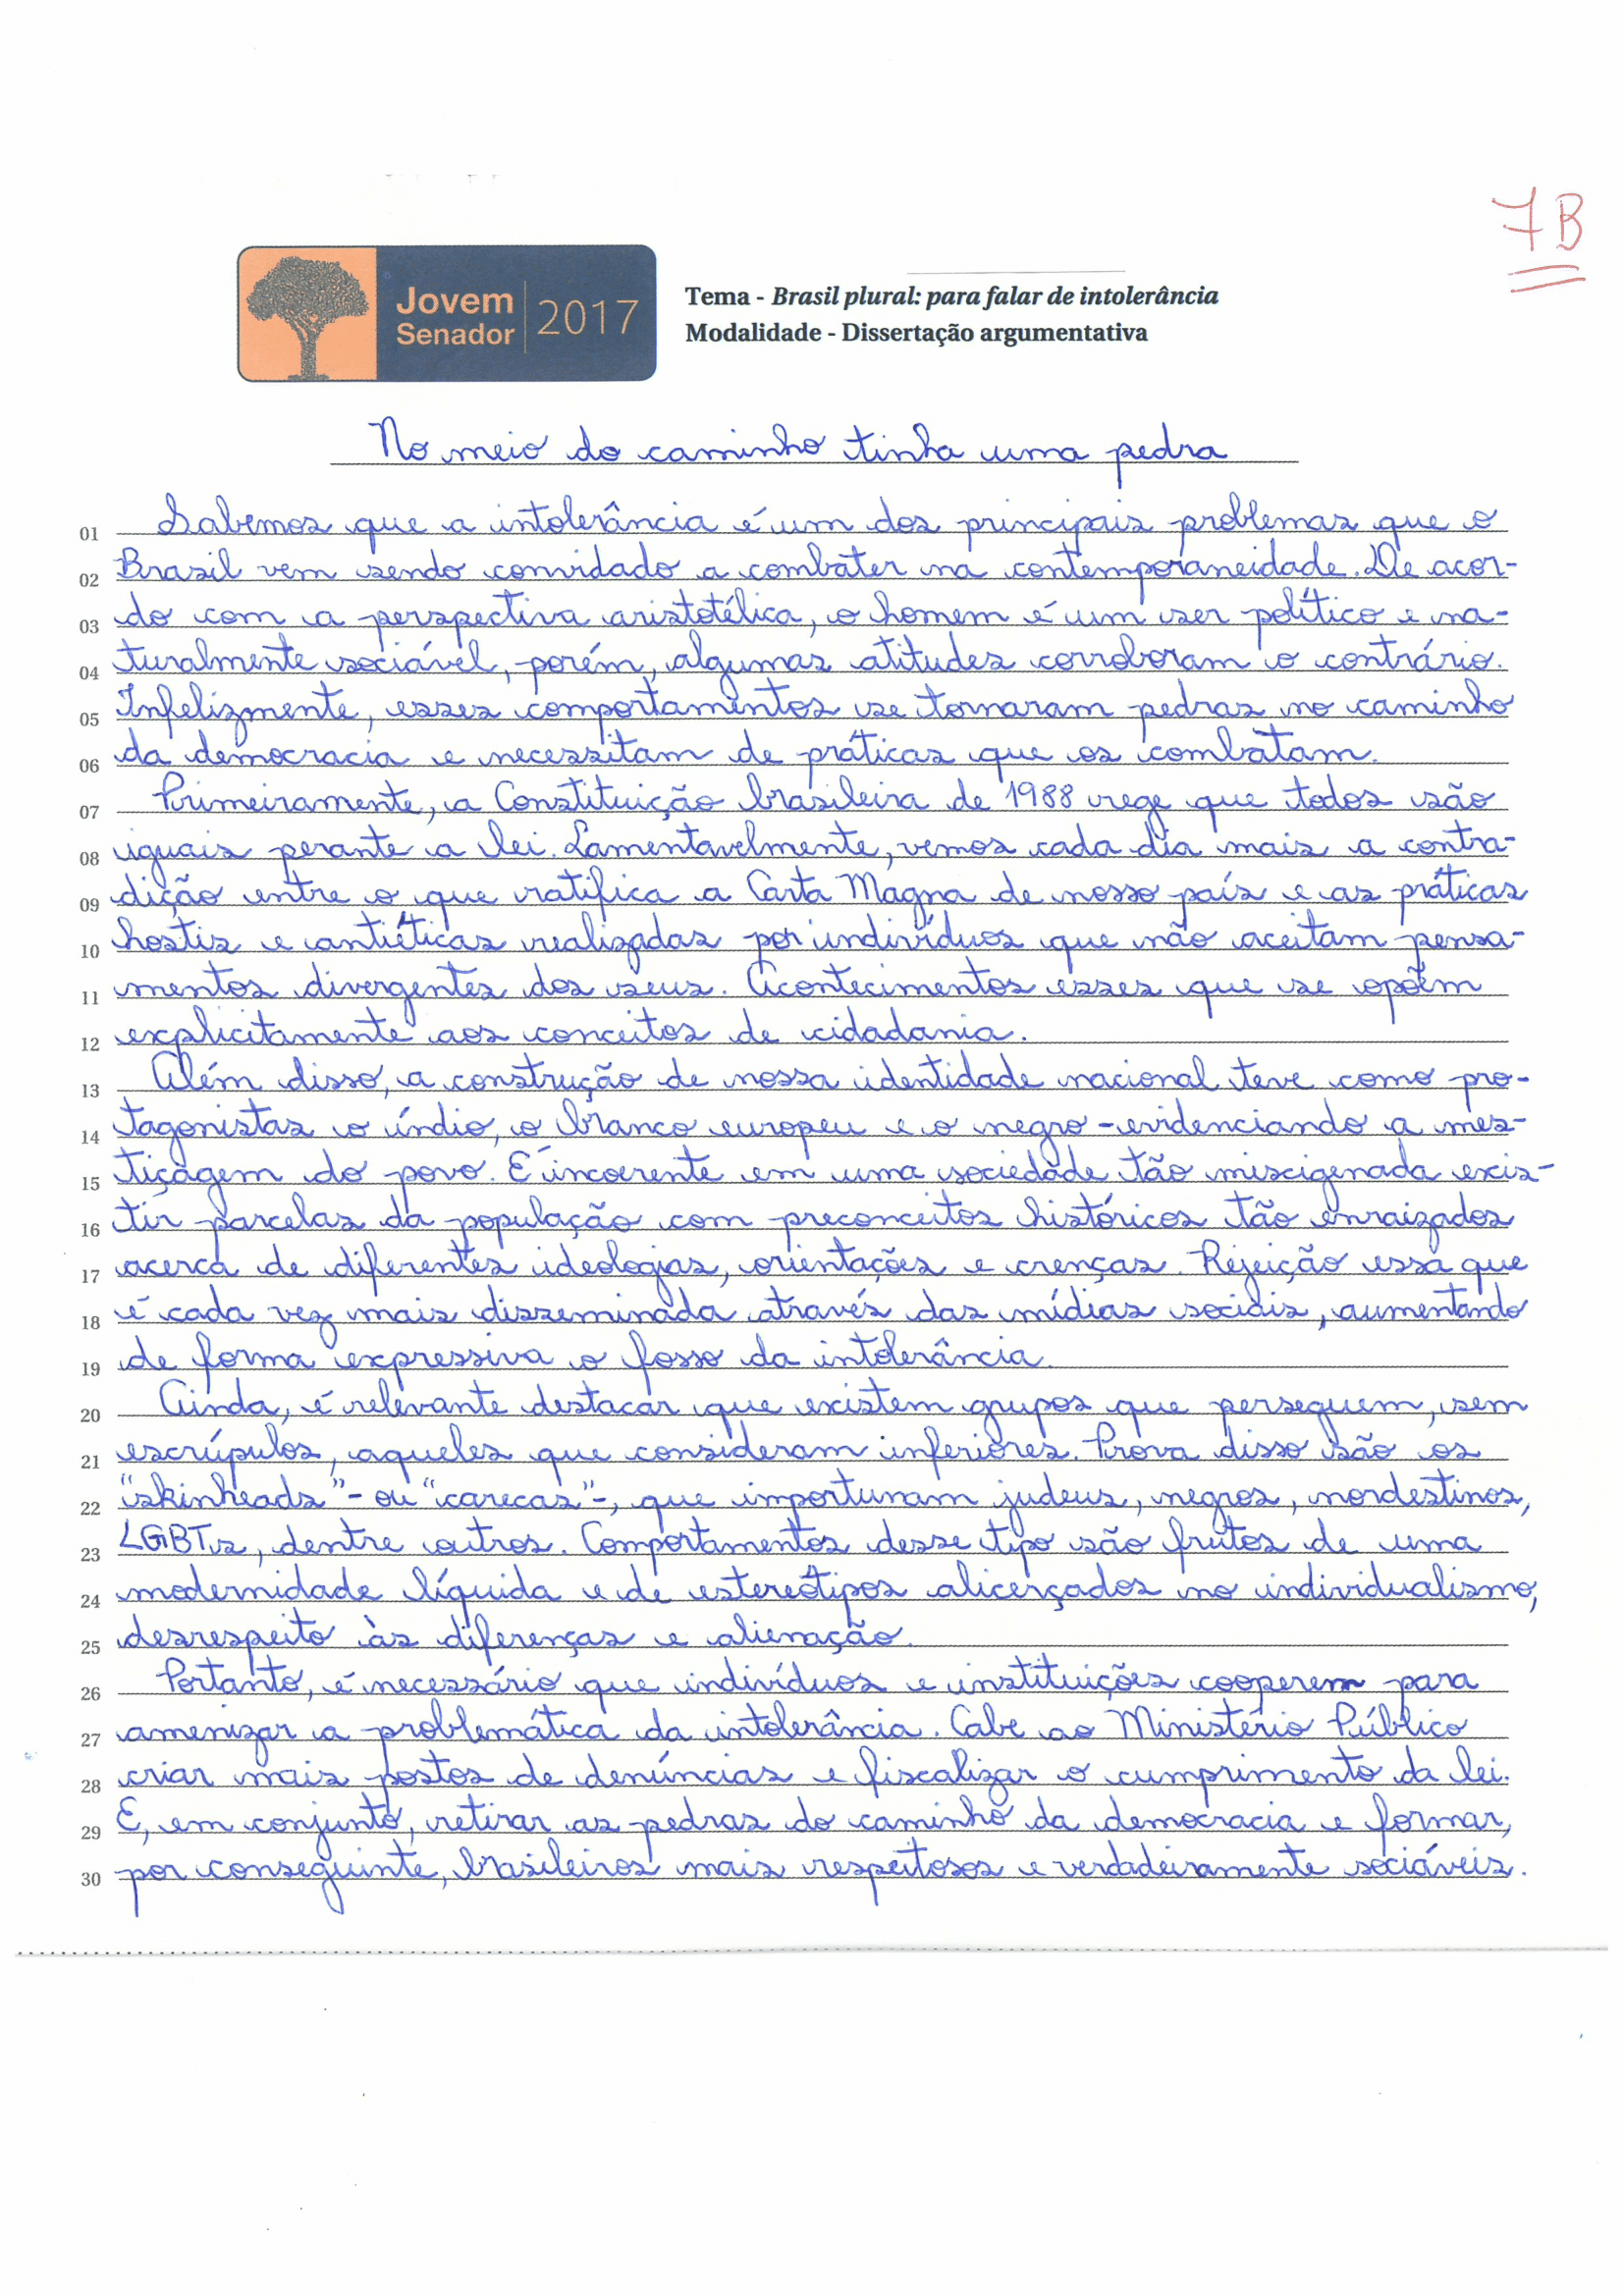 7B
Jovem
Senador
2017
Tema - Brasil plural: para falar de intolerância
Modalidade - Dissertação argumentativa
No meio do caminho tinha uma pedra
01 Sabemos que a intolerância é um dos principais problemas que o
02 Brasil vem sendo convidado a combater na contemporaneidade. De acor-
03 do com a perspectiva aristotélica, o homem é um ser político e na-
04 turalmente sociável, porém, algumas atitudes corroboram o contrário.
05 Infelizmente, esses comportamentos se tornaram pedras no caminho
06 da democracia e necessitam de práticas que os combatam.
07 Primeiramente, a Constituição brasileira de 1988 rege que todos são
08 iguais perante a lei. Lamentavelmente, vemos cada dia mais a contra-
09 dição entre o que ratifica a Carta Magna de nosso país e as práticas
10 hostis e antiéticas realizadas por indivíduos que não aceitam pensa-
11 mentos divergentes dos seus. Acontecimentos esses que se opõem
12 explicitamente aos conceitos de cidadania.
13 Além disso, a construção de nossa identidade nacional teve como pro-
14 tagonistas o índio, o branco europeu e o negro - evidenciando a mes-
15 tiçagem do povo. É incoerente em uma sociedade tão miscigenada exis-
16 tir parcelas da população com preconceitos históricos tão enraizados
17 acerca de diferentes ideologias, orientações e crenças. Rejeição essa que
18 é cada vez mais disseminada através das mídias sociais, aumentando
19 de forma expressiva o fosso da intolerância.
20 Ainda, é relevante destacar que existem grupos que perseguem, sem
21 escrúpulos, aqueles que consideram inferiores. Prova disso são os
22 "skinheads" - ou "carecas" -, que importunam judeus, negros, nordestinos,
23 LGBTs, dentre outros. Comportamentos desse tipo são frutos de uma
24 modernidade líquida e de estereótipos alicerçados no individualismo,
25 desrespeito às diferenças e alienação.
26 Portanto, é necessário que indivíduos e instituições cooperem para
27 amenizar a problemática da intolerância. Cabe ao Ministério Público
28 criar mais postos de denúncias e fiscalizar o cumprimento da lei.
29 E, em conjunto, retirar as pedras do caminho da democracia e formar,
30 por conseguinte, brasileiros mais respeitosos e verdadeiramente sociáveis.